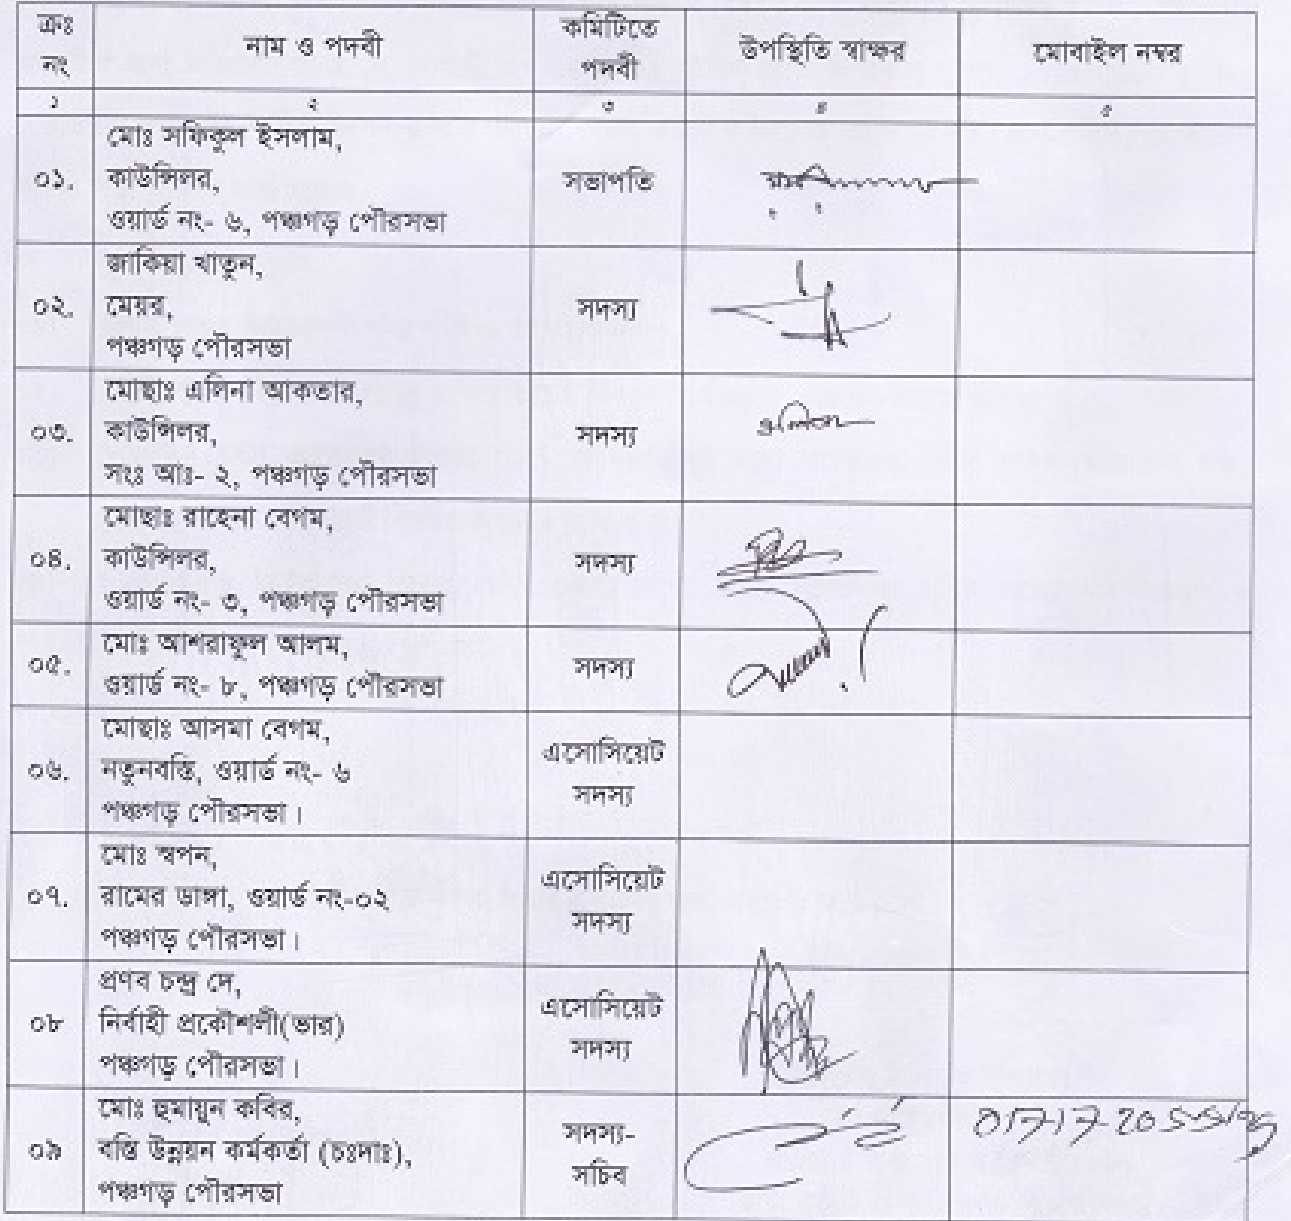 ক্রঃ নং
নাম ও পদবী
কমিটিতে পদবী
উপস্থিতি স্বাক্ষর
মোবাইল নম্বর
১
২
৩
৪
৫
০১.
মোঃ সফিকুল ইসলাম,
কাউন্সিলর,
ওয়ার্ড নং- ৬, পঞ্চগড় পৌরসভা
সভাপতি
০২.
জাকিয়া খাতুন,
মেয়র,
পঞ্চগড় পৌরসভা
সদস্য
০৩.
মোছাঃ এলিনা আকতার,
কাউন্সিলর,
সংঃ আঃ- ২, পঞ্চগড় পৌরসভা
সদস্য
এলিনা
০৪.
মোছাঃ রাহেনা বেগম,
কাউন্সিলর,
ওয়ার্ড নং- ৩, পঞ্চগড় পৌরসভা
সদস্য
০৫.
মোঃ আশরাফুল আলম,
ওয়ার্ড নং- ৮, পঞ্চগড় পৌরসভা
সদস্য
০৬.
মোছাঃ আসমা বেগম,
নতুনবস্তি, ওয়ার্ড নং- ৬
পঞ্চগড় পৌরসভা।
এসোসিয়েট
সদস্য
০৭.
মোঃ স্বপন,
রামের ডাঙ্গা, ওয়ার্ড নং-০২
পঞ্চগড় পৌরসভা।
এসোসিয়েট
সদস্য
০৮
প্রণব চন্দ্র দে,
নির্বাহী প্রকৌশলী(ভার)
পঞ্চগড় পৌরসভা।
এসোসিয়েট
সদস্য
০৯
মোঃ হুমায়ুন কবির,
বস্তি উন্নয়ন কর্মকর্তা (চঃদাঃ),
পঞ্চগড় পৌরসভা
সদস্য-
সচিব